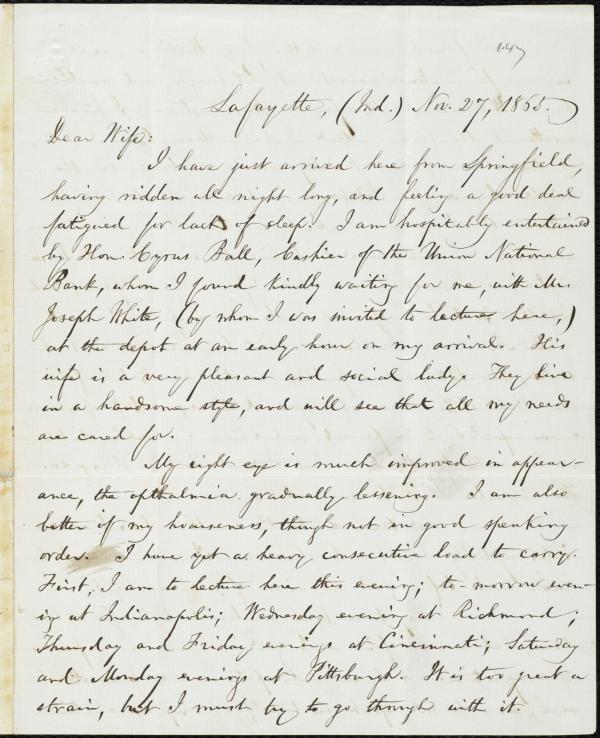 147
Lafayette, (Ind.) Nov. 27, 1865.
Dear Wife:
I have just arrived here from Springfield,
having ridden all night long, and feeling a good deal
fatigued for lack of sleep. I am hospitably entertained
by Hon. Cyrus Ball, Cashier of the Union National
Bank, whom I found kindly waiting for me, with Mr.
Joseph White, (by whom I was invited to lecture here,)
at the depot at an early hour on my arrival. His
wife is a very pleasant and social lady. They live
in a handsome style, and will see that all my needs
are cared for.
My right eye is much improved in appear-
ance, the opthalmia gradually lessening. I am also
better of my hoarseness, though not in good speaking
order. I have yet a heavy consecutive load to carry.
First, I am to lecture here this evening; to-morrow even-
ing at Indianapolis; Wednesday evening at Richmond;
Thursday and Friday evenings at Cincinnati; Saturday
and Monday evenings at Pittsburgh. It is too great a
strain, but I must try to go through with it.